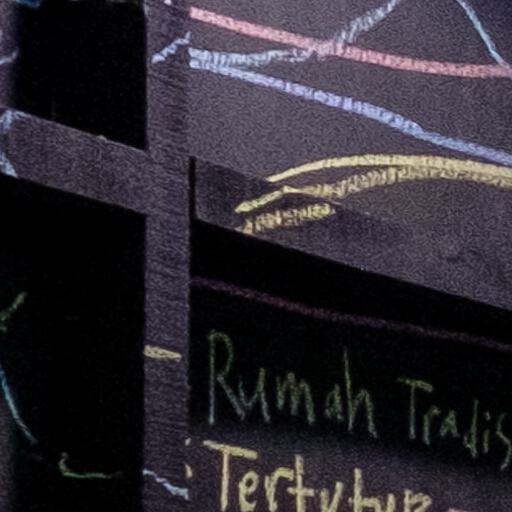 Rumah Tradis
Tertutup